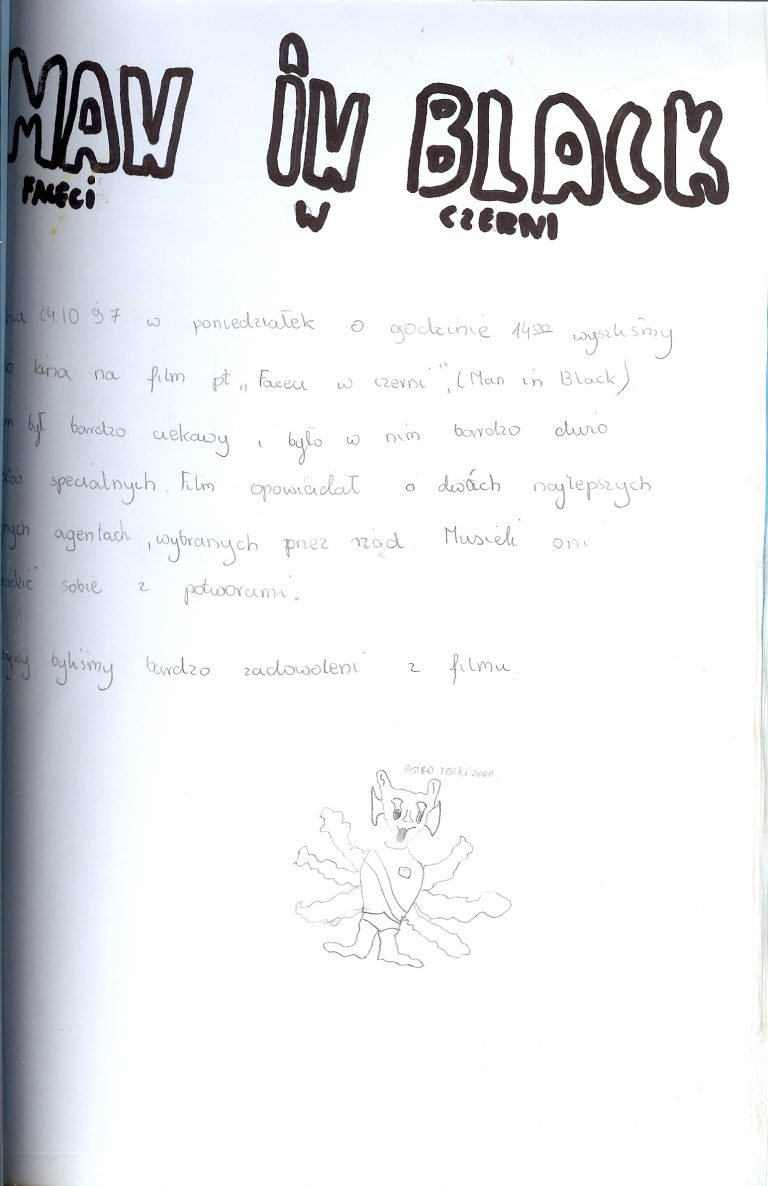 MAN iN BLACK
FACECi W CZERNI
24.10 97 w poniedziałek o godzinie 14⁰⁰ wyszliśmy
kina na film pt „Faceci w czerni", (Man in Black)
był bardzo ciekawy i było w nim bardzo dużo
specialnych. Film opowiadał o dwóch najlepszych
agentach, wybranych przez rząd. Musieli oni
sobie z potworami.
byliśmy bardzo zadowoleni z filmu.
ASTRO TERKI 2000